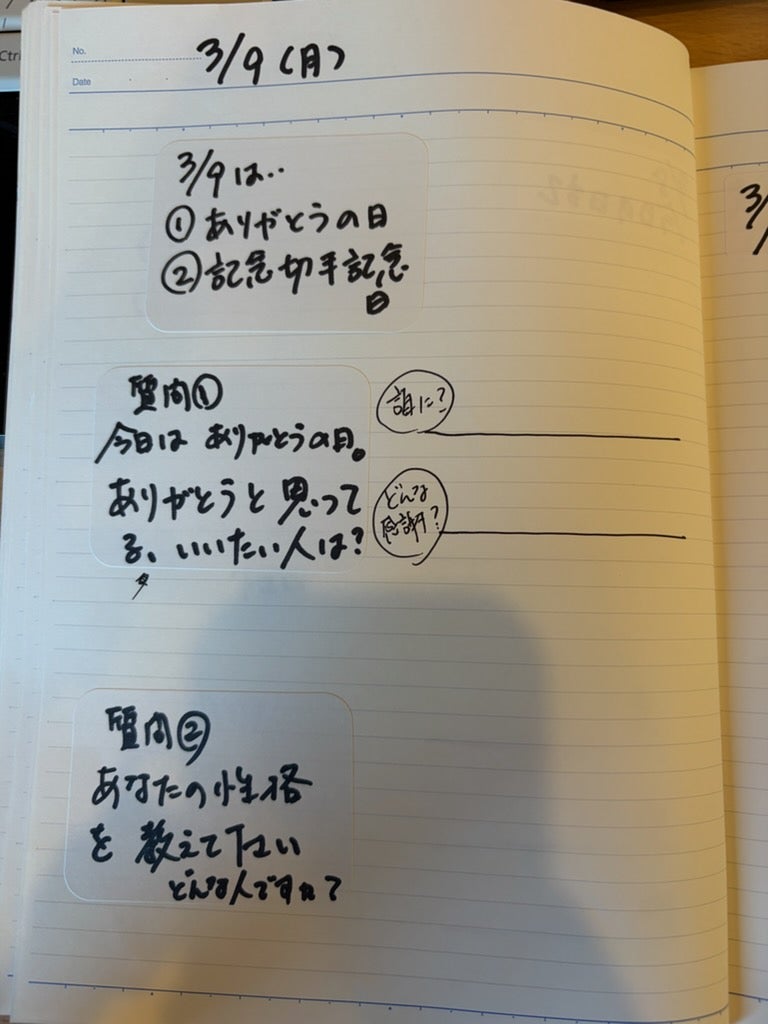 Ctrl
No.
3/9(月)
Date
3/9は‥
①ありがとうの日
②記念切手記念
日
3/
質問①
今日はありがとうの日。
ありがとうと思って
る、いいたい人は?
誰に?
どんな
感謝?
質問②
あなたの性格
を教えて下さい
どんな人ですか?